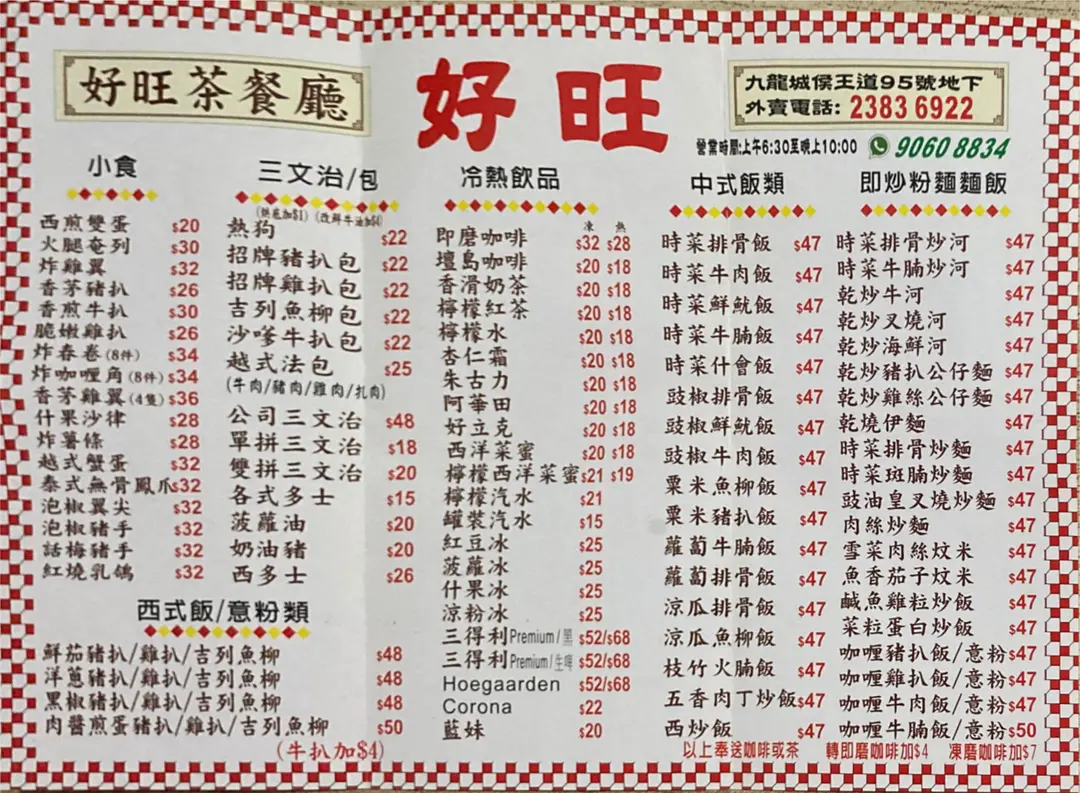 好旺茶餐廳
好旺
九龍城侯王道95號地下
外賣電話: 2383 6922
營業時間:上午6:30至晚上10:00 9060 8834
小食
西煎雙蛋 $20
火腿奄列 $30
炸雞翼 $32
香茅豬扒 $26
香煎牛扒 $30
脆嫩雞扒 $26
炸春卷(8件) $34
炸咖喱角(8件) $34
香茅雞翼(4隻) $36
什果沙律 $28
炸薯條 $28
越式蟹蛋 $32
泰式無骨鳳爪 $32
泡椒翼尖 $32
泡椒豬手 $32
話梅豬手 $32
紅燒乳鴿 $32
三文治/包
(烘底加$1) (改鮮牛油加$4)
熱狗 $22
招牌豬扒包 $22
招牌雞扒包 $22
吉列魚柳包 $22
沙嗲牛扒包 $22
越式法包 $25
(牛肉/豬肉/雞肉/扎肉)
公司三文治 $48
單拼三文治 $18
雙拼三文治 $20
各式多士 $15
菠蘿油 $20
奶油豬 $20
西多士 $26
西式飯/意粉類
鮮茄豬扒/雞扒/吉列魚柳 $48
洋蔥豬扒/雞扒/吉列魚柳 $48
黑椒豬扒/雞扒/吉列魚柳 $48
肉醬煎蛋豬扒/雞扒/吉列魚柳 $50
(牛扒加$4)
冷熱飲品
凍 熱
即磨咖啡 $32 $28
壇島咖啡 $20 $18
香滑奶茶 $20 $18
檸檬紅茶 $20 $18
檸檬水 $20 $18
杏仁霜 $20 $18
朱古力 $20 $18
阿華田 $20 $18
好立克 $20 $18
西洋菜蜜 $20 $18
檸檬西洋菜蜜 $21 $19
檸檬汽水 $21
罐裝汽水 $15
紅豆冰 $25
菠蘿冰 $25
什果冰 $25
涼粉冰 $25
三得利Premium/黑 $52/$68
三得利Premium/生啤 $52/$68
Hoegaarden $52/$68
Corona $22
藍妹 $20
中式飯類
時菜排骨飯 $47
時菜牛肉飯 $47
時菜鮮魷飯 $47
時菜牛腩飯 $47
時菜什會飯 $47
豉椒排骨飯 $47
豉椒鮮魷飯 $47
豉椒牛肉飯 $47
粟米魚柳飯 $47
粟米豬扒飯 $47
蘿蔔牛腩飯 $47
蘿蔔排骨飯 $47
涼瓜排骨飯 $47
涼瓜魚柳飯 $47
枝竹火腩飯 $47
五香肉丁炒飯 $47
西炒飯 $47
即炒粉麵麵飯
時菜排骨炒河 $47
時菜牛腩炒河 $47
乾炒牛河 $47
乾炒叉燒河 $47
乾炒海鮮河 $47
乾炒豬扒公仔麵 $47
乾炒雞絲公仔麵 $47
乾燒伊麵 $47
時菜排骨炒麵 $47
時菜斑腩炒麵 $47
豉油皇叉燒炒麵 $47
肉絲炒麵 $47
雪菜肉絲炆米 $47
魚香茄子炆米 $47
鹹魚雞粒炒飯 $47
菜粒蛋白炒飯 $47
咖喱豬扒飯/意粉 $47
咖喱雞扒飯/意粉 $47
咖喱牛肉飯/意粉 $47
咖喱牛腩飯/意粉 $50
以上奉送咖啡或茶 轉即磨咖啡加$4 凍磨咖啡加$7